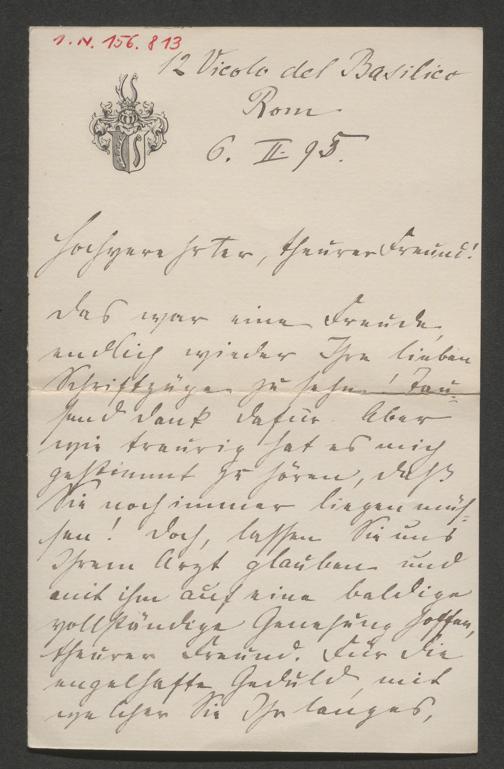 I. N. 156.813
12 Vicolo del Basilico
Rom
6. II. 95.
Hochverehrter, theurer Freund!
Das war eine Freude
endlich wieder Ihre lieben
Schriftzüge zu sehn! Tau-
send Dank dafür. Aber
wie traurig hat es mich
gestimmt zu hören, daß
Sie noch immer liegen müs-
sen! Doch, lassen Sie uns
Ihrem Arzt glauben und
mit ihm auf eine baldige
vollständige Genesung hoffen,
theurer Freund. Für die
engelhafte Geduld, mit
welcher Sie Ihr langes,